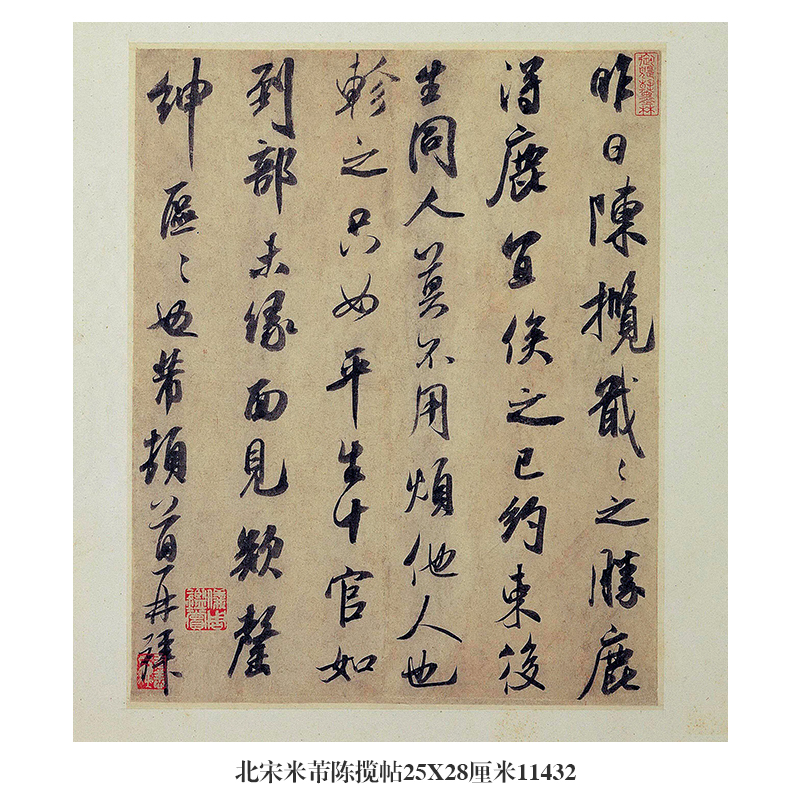 昨日陳攬戢〻之勝鹿
得鹿宜俟之已約束後
生同人莫不用煩他人也
軫之只如平生十官如
到部未緣面見欵罄
紳區〻也芾頓首再拜
北宋米芾陈揽帖25X28厘米11432